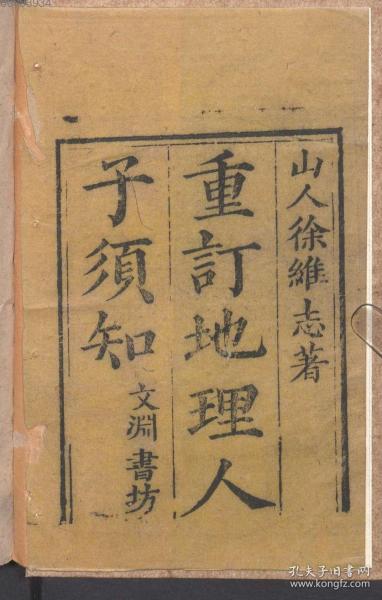 山人徐維志著
重訂地理人
子須知
文淵書坊
孔夫子旧书网
www.kongfz.com